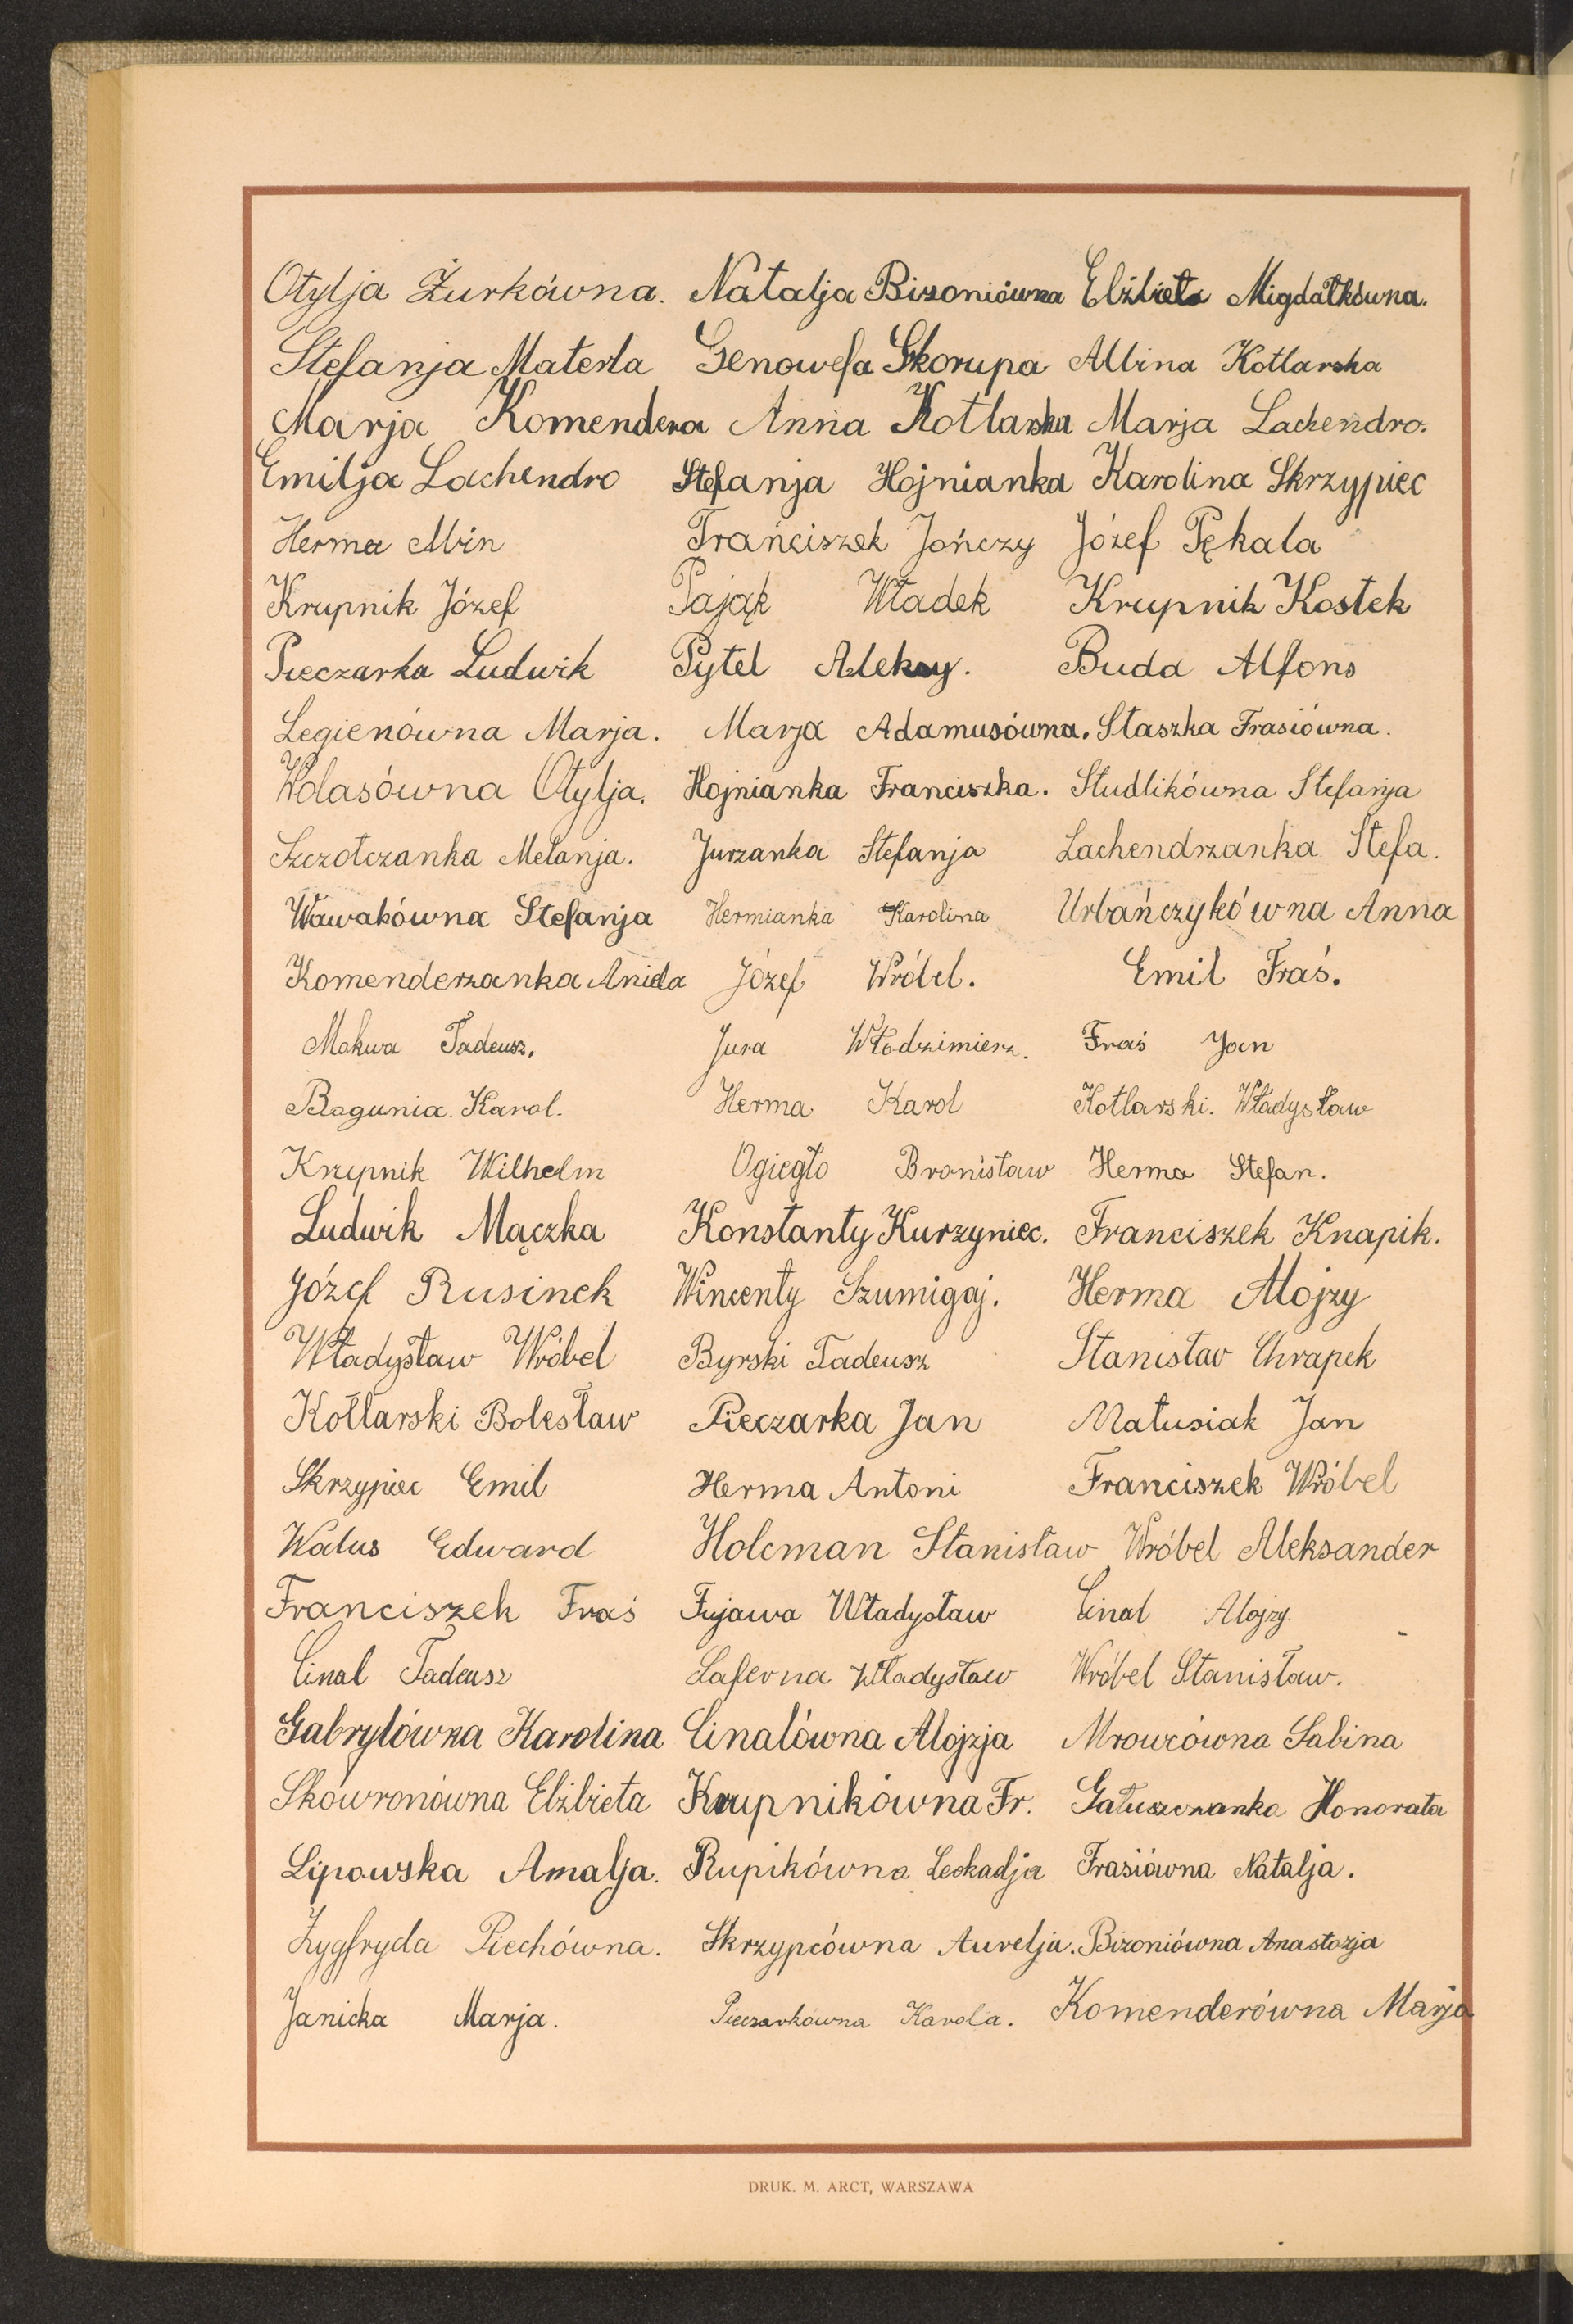 Otylja Żurkówna. Natalja Bizoniówna Elżbieta Migdałkówna.
Stefanja Materla Genowefa Skorupa Albina Kotlarska
Marja Komendera Anna Kotlarska Marja Lachendro.
Emilja Lachendro Stefanja Hojnianka Karolina Skrzypiec
Herma Albin Frańciszek Jończy Józef Pękala
Krupnik Józef Pająk Władek Krupnik Kostek
Pieczarka Ludwik Pytel Aleksy. Buda Alfons
Legienówna Marja. Marja Adamusówna. Staszka Frasiówna.
Wolasówna Otylja. Hojnianka Franciszka. Studlikówna Stefanja
Szczotczanka Melanja. Jurzanka Stefanja Lachendrzanka Stefa.
Wawakówna Stefanja Hermianka Karolina Urbańczykówna Anna
Komenderzanka Anida Józef Wróbel. Emil Fraś.
Mokwa Tadeusz. Jura Włodzimierz. Fraś Jan
Bogunia. Karol. Herma Karol Kotlarski. Władysław
Krupnik Wilhelm Ogiegło Bronisław Herma Stefan.
Ludwik Mączka Konstanty Kurzyniec. Franciszek Knapik.
Józef Rusinek Wincenty Szumigaj. Herma Alojzy
Władysław Wróbel Byrski Tadeusz Stanisław Chrapek
Kotlarski Bolesław Pieczarka Jan Matusiak Jan
Skrzypiec Emil Herma Antoni Franciszek Wróbel
Walus Edward Holcman Stanisław Wróbel Aleksander
Franciszek Fraś Fujawa Władysław Cinal Alojzy
Cinal Tadeusz Laferna Władysław Wróbel Stanisław.
Gabrylówna Karolina Cinalówna Alojzja Mrowcówna Sabina
Skowronówna Elżbieta Krupnikówna Fr. Gałuszczanka Honorata
Lipowska Amalja. Rupikówna Leokadja Frasiówna Natalja.
Zygfryda Piechówna. Skrzypcówna Aurelja. Bizoniówna Anastazja
Janicka Marja. Pieczarkówna Karola. Komenderówna Marja
DRUK. M. ARCT, WARSZAWA